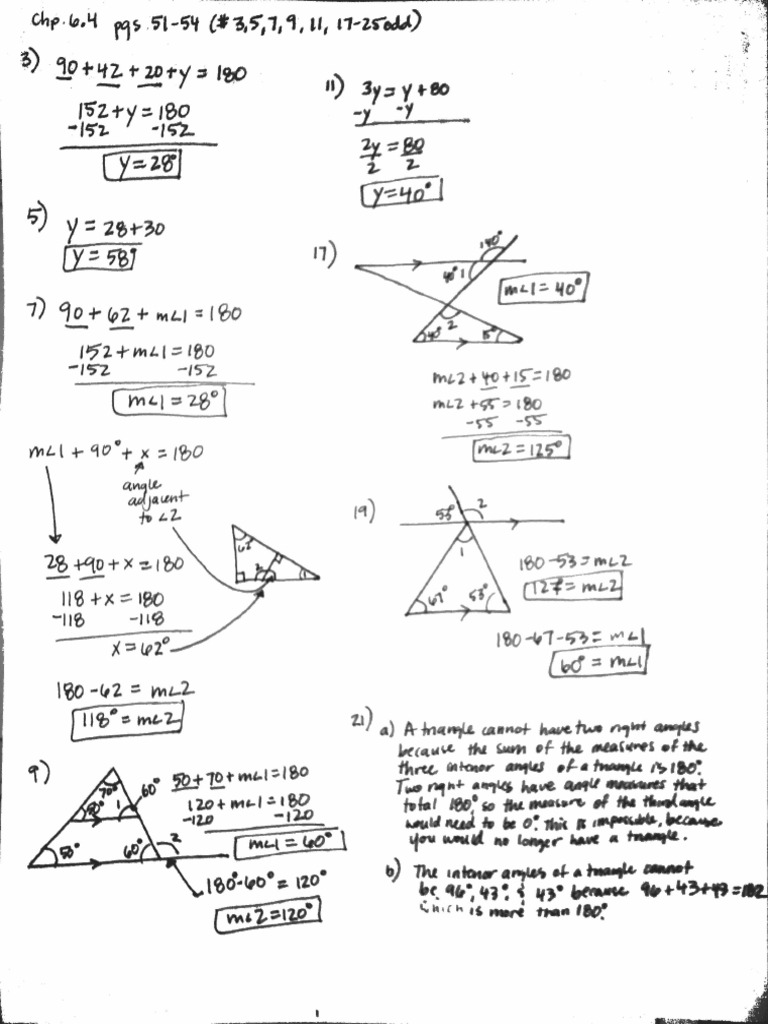 Chp. 6.4 pgs. 51-54 (# 3,5,7,9, 11, 17-25odd)
3) 90+42+20+y=180
152+y=180
-152 -152
y=28°
5) y = 28+30
y=58°
7) 90+62+m∠1=180
152+m∠1=180
-152 -152
m∠1=28°
m∠1+90°+x=180
angle
adjacent
to ∠2
28+90+x=180
118+x=180
-118 -118
x=62°
180-62=m∠2
118°=m∠2
62°
2
1
9)
70°
60°
50°
1
50°
60°
2
50+70+m∠1=180
120+m∠1=180
-120 -120
m∠1=60°
180°-60°=120°
m∠2=120°
11) 3y=y+80
-y -y
2y=80
2 2
y=40°
17)
140°
40° 1
2
40°
15°
m∠1=40°
m∠2+40+15=180
m∠2+55=180
-55 -55
m∠2=125°
19)
53°
2
1
67°
53°
180-53=m∠2
127=m∠2
180-67-53=m∠1
60°=m∠1
21) a) A triangle cannot have two right angles
because the sum of the measures of the
three interior angles of a triangle is 180°.
Two right angles have angle measures that
total 180°, so the measure of the third angle
would need to be 0°. This is impossible, because
you would no longer have a triangle.
b) The interior angles of a triangle cannot
be 96°, 43°, & 43° because 96+43+43=182
which is more than 180°.
1